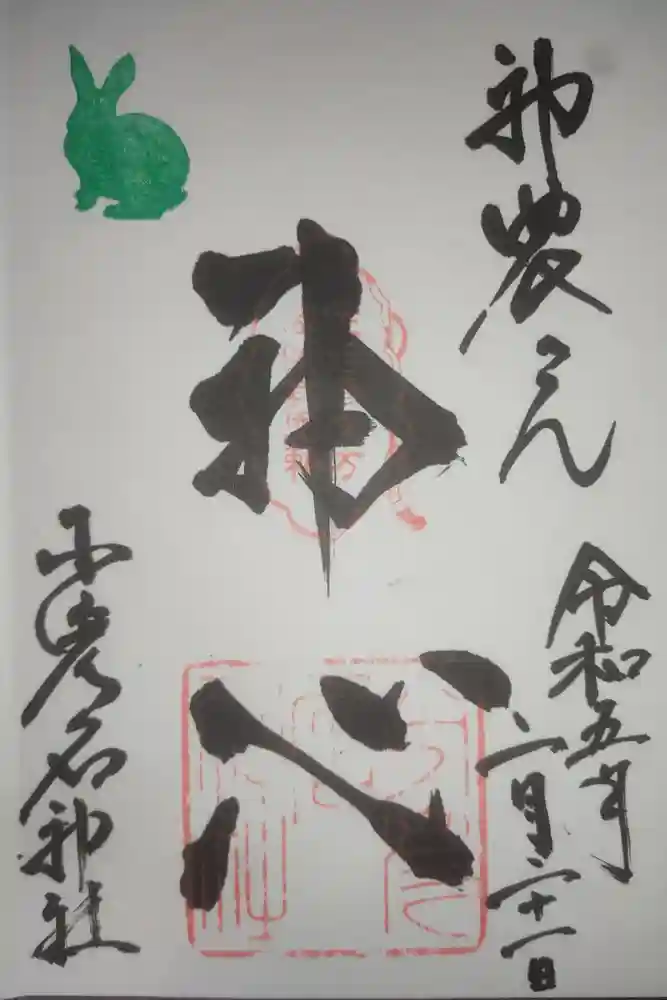 神農さん
令和五年
二月二十一日
神
心
少彦名神社